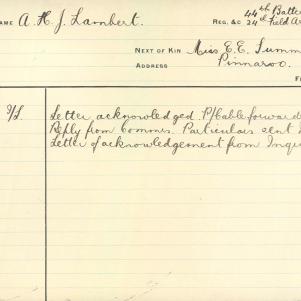 NAME A. H. J. Lambert. REG. &C 44th Batte
24th Field Ar
NEXT OF KIN Miss E. E. Summ
ADDRESS Pinnaroo.
F
Letter acknowledged. P/Cable forward
Reply from Commrs. Particulars sent
Letter of acknowledgement from Inqui